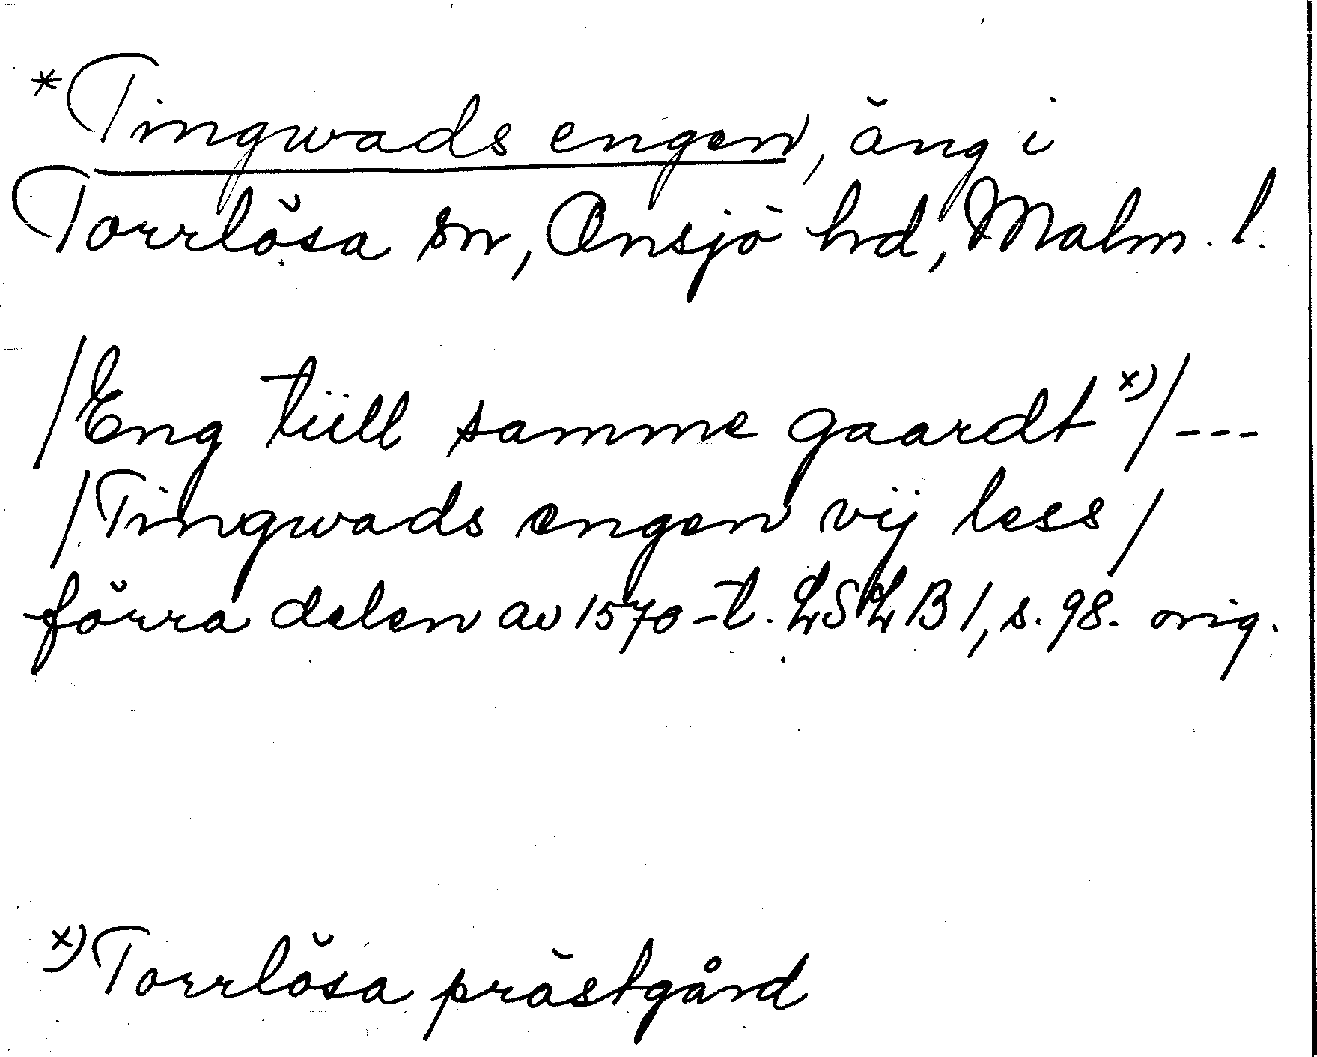 *Tingwads engen, äng i
Torrlösa sn, Onsjö hd, Malm. l.
/Eng tiill samme gaardt x)/---
/Tingwads engen vij less/
förra delen av 1570-t. LSLB 1, s. 98. orig.
x) Torrlösa prästgård